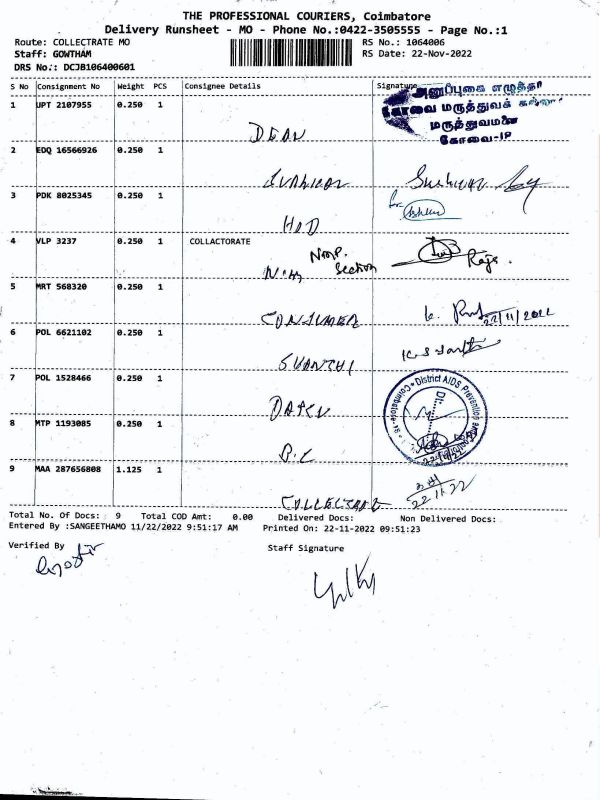 THE PROFESSIONAL COURIERS, Coimbatore
Delivery Runsheet - MO - Phone No.:0422-3505555 - Page No.:1
Route: COLLECTRATE MO
RS No.: 1064006
Staff: GOWTHAM
RS Date: 22-Nov-2022
DRS No.: DCJB106400601
S No Consignment No Weight PCS Consignee Details Signature
அனுப்புகை எழுத்தர்
கோவை மருத்துவக்
மருத்துவமனை
கோவை-18
1 UPT 2107955 0.250 1
DEAN
2 EDQ 16566926 0.250 1
3 PDK 8025345 0.250 1
HOD
4 VLP 3237 0.250 1 COLLACTORATE
Section
Raja.
5 MRT 568320 0.250 1
CONSUMER
22/11/2022
6 POL 6621102 0.250 1
SHANTHI
7 POL 1528466 0.250 1
District AIDS Prevention
Coimbatore
DAPCU
8 MTP 1193085 0.250 1
9 MAA 287656808 1.125 1
22.11.22
Total No. Of Docs: 9 Total COD Amt: 0.00 Delivered Docs: Non Delivered Docs:
Entered By :SANGEETHAMO 11/22/2022 9:51:17 AM Printed On: 22-11-2022 09:51:23
Verified By
Staff Signature